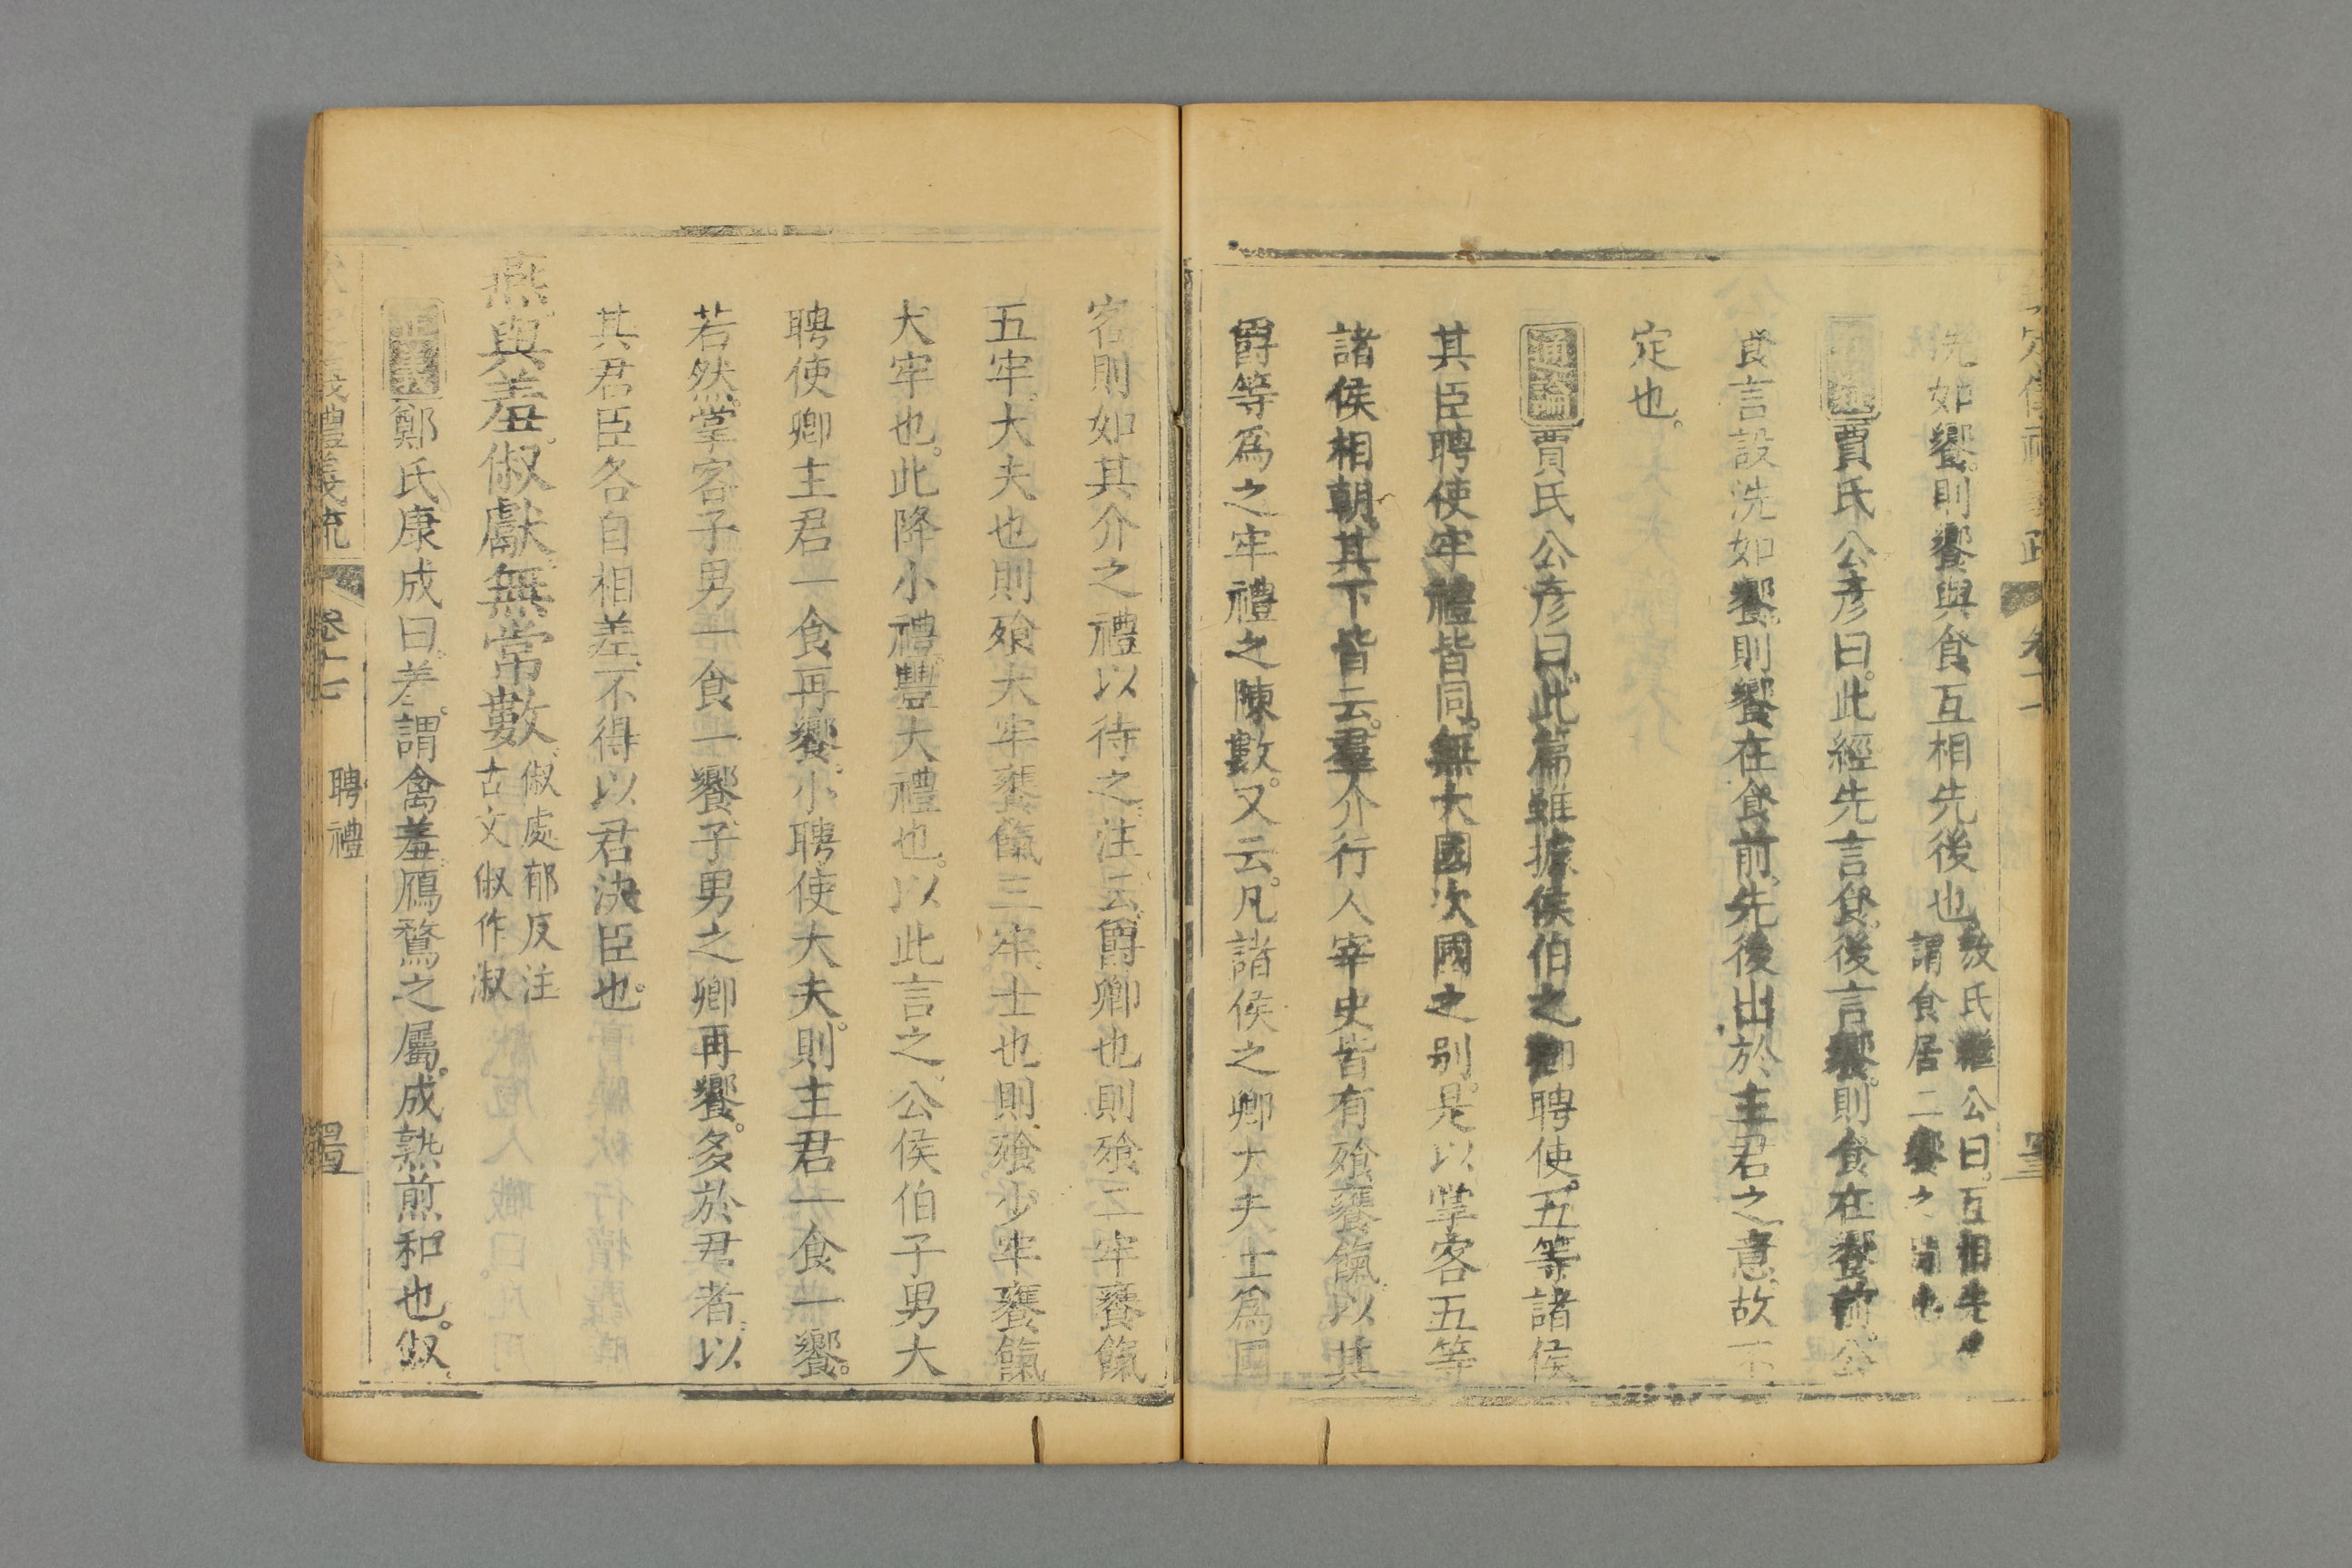 定儀禮義疏 卷十
洗如饗則饗與食互相先後也
敖氏繼公曰互相先後
謂食居二饗之間也
賈氏公彦曰此經先言食後言饗則食在饗前公
食言設洗如饗則饗在食前先後出於主君之意故不
定也
通論 賈氏公彦曰此篇雖據侯伯之卿聘使五等諸侯
其臣聘使牢禮皆同無大國次國之别是以掌客五等
諸侯相朝其下皆云羣介行人宰史皆有飱饔餼以其
爵等爲之牢禮之陳數又云凡諸侯之卿大夫士爲國
客則如其介之禮以待之注云爵卿也則飱二牢饔餼
五牢大夫也則飱大牢饔餼三牢士也則飱少牢饔餼
大牢也此降小禮豐大禮也以此言之公侯伯子男大
聘使卿主君一食再饗小聘使大夫則主君一食一饗
若然掌客子男一食一饗子男之卿再饗多於君者以
其君臣各自相差不得以君決臣也
燕與羞俶獻無常數
俶處郁反注
古文俶作淑
正義 鄭氏康成曰羞謂禽羞鴈鶩之屬成熟煎和也俶
義禮義疏 卷十七 聘禮